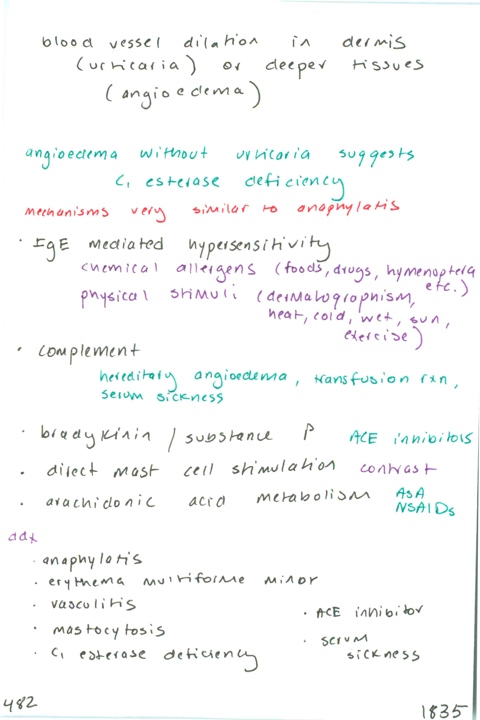 blood vessel dilation in dermis
(urticaria) or deeper tissues
(angioedema)
angioedema without urticaria suggests
C1 esterase deficiency
mechanisms very similar to anaphylatis
· IgE mediated hypersensitivity
chemical allergens (foods, drugs, hymenoptera
etc.)
physical stimuli (dermatogrophnism,
heat, cold, wet, sun,
exercise)
· complement
hereditary angioedema, transfusion rxn,
serum sickness
· bradykinin / substance P ACE inhibitors
· direct mast cell stimulation contrast
· arachidonic acid metabolism ASA
NSAIDs
ddx
· anaphylatis
· erythema multiforme minor
· vasculitis
· mastocytosis
· C1 esterase deficiency
· ACE inhibitor
· serum
sickness
482
1835